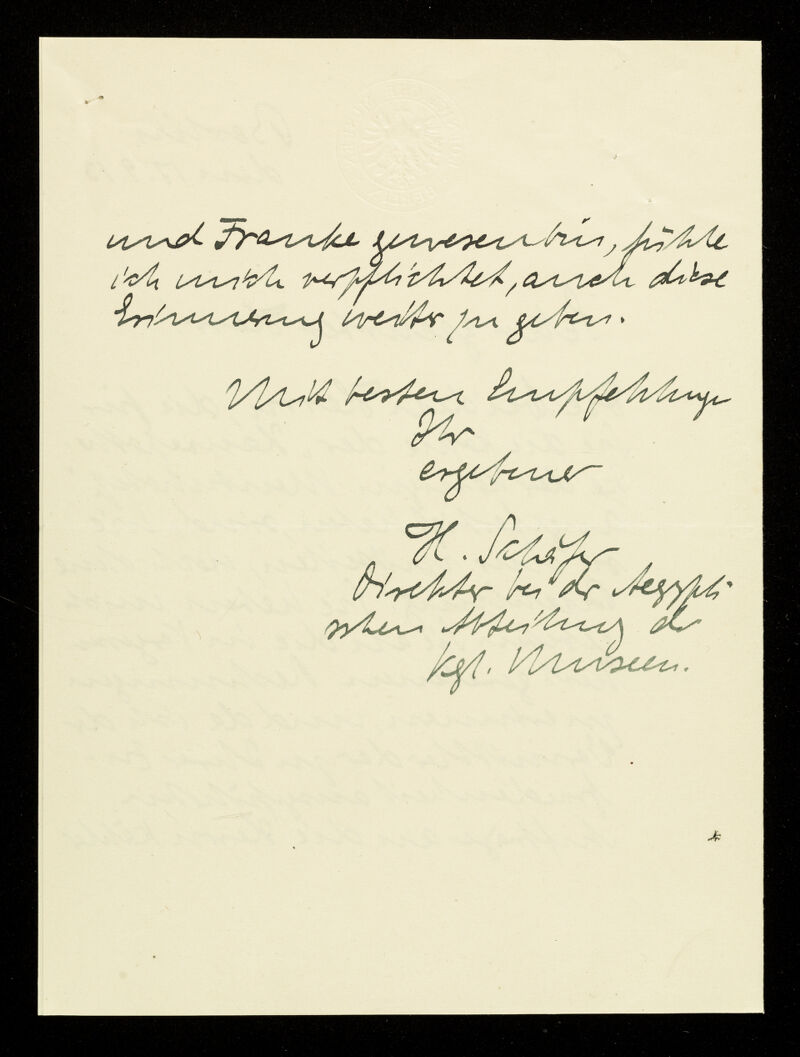 und Franke gewesen bin, fühle
ich mich verpflichtet, auch diese
Erinnerung weiter zu geben.
Mit besten Empfehlungen
Ihr
ergebener
H. Schäfer
Direktor bei der Aegypti
schen Abteilung der
Kgl. Museen.